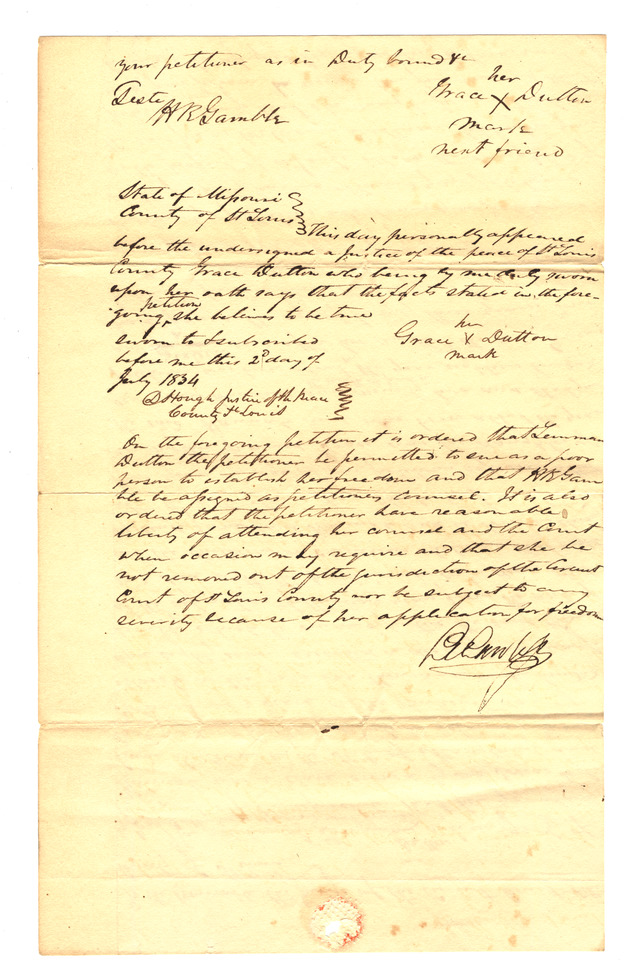 your petitioner as in Duty bound &c
Teste
H R Gamble
her
Grace X Dutton
mark
next friend
State of Missouri
County of St Louis This day personally appeared
before the undersigned a Justice of the peace of St Louis
County Grace Dutton who being by me duly sworn
upon her oath says that the facts stated in the fore-
petition
going, she believes to be true
sworn to & subscribed
before me this 2d day of
July 1834
her
Grace X Dutton
mark
D Hough Justice of the Peace
County St Louis
On the foregoing petition it is ordered that
Dutton the petitioner be permitted to sue as a poor
person to establish her freedom and that H R Gam
ble be assigned as petitioners counsel. It is also
ordered that the petitioner have reasonable
liberty of attending her counsel and the Court
when occasion may require and that she be
not removed out of the jurisdiction of the Circuit
Court of St Louis County nor be subject to any
severity because of her application for freedom